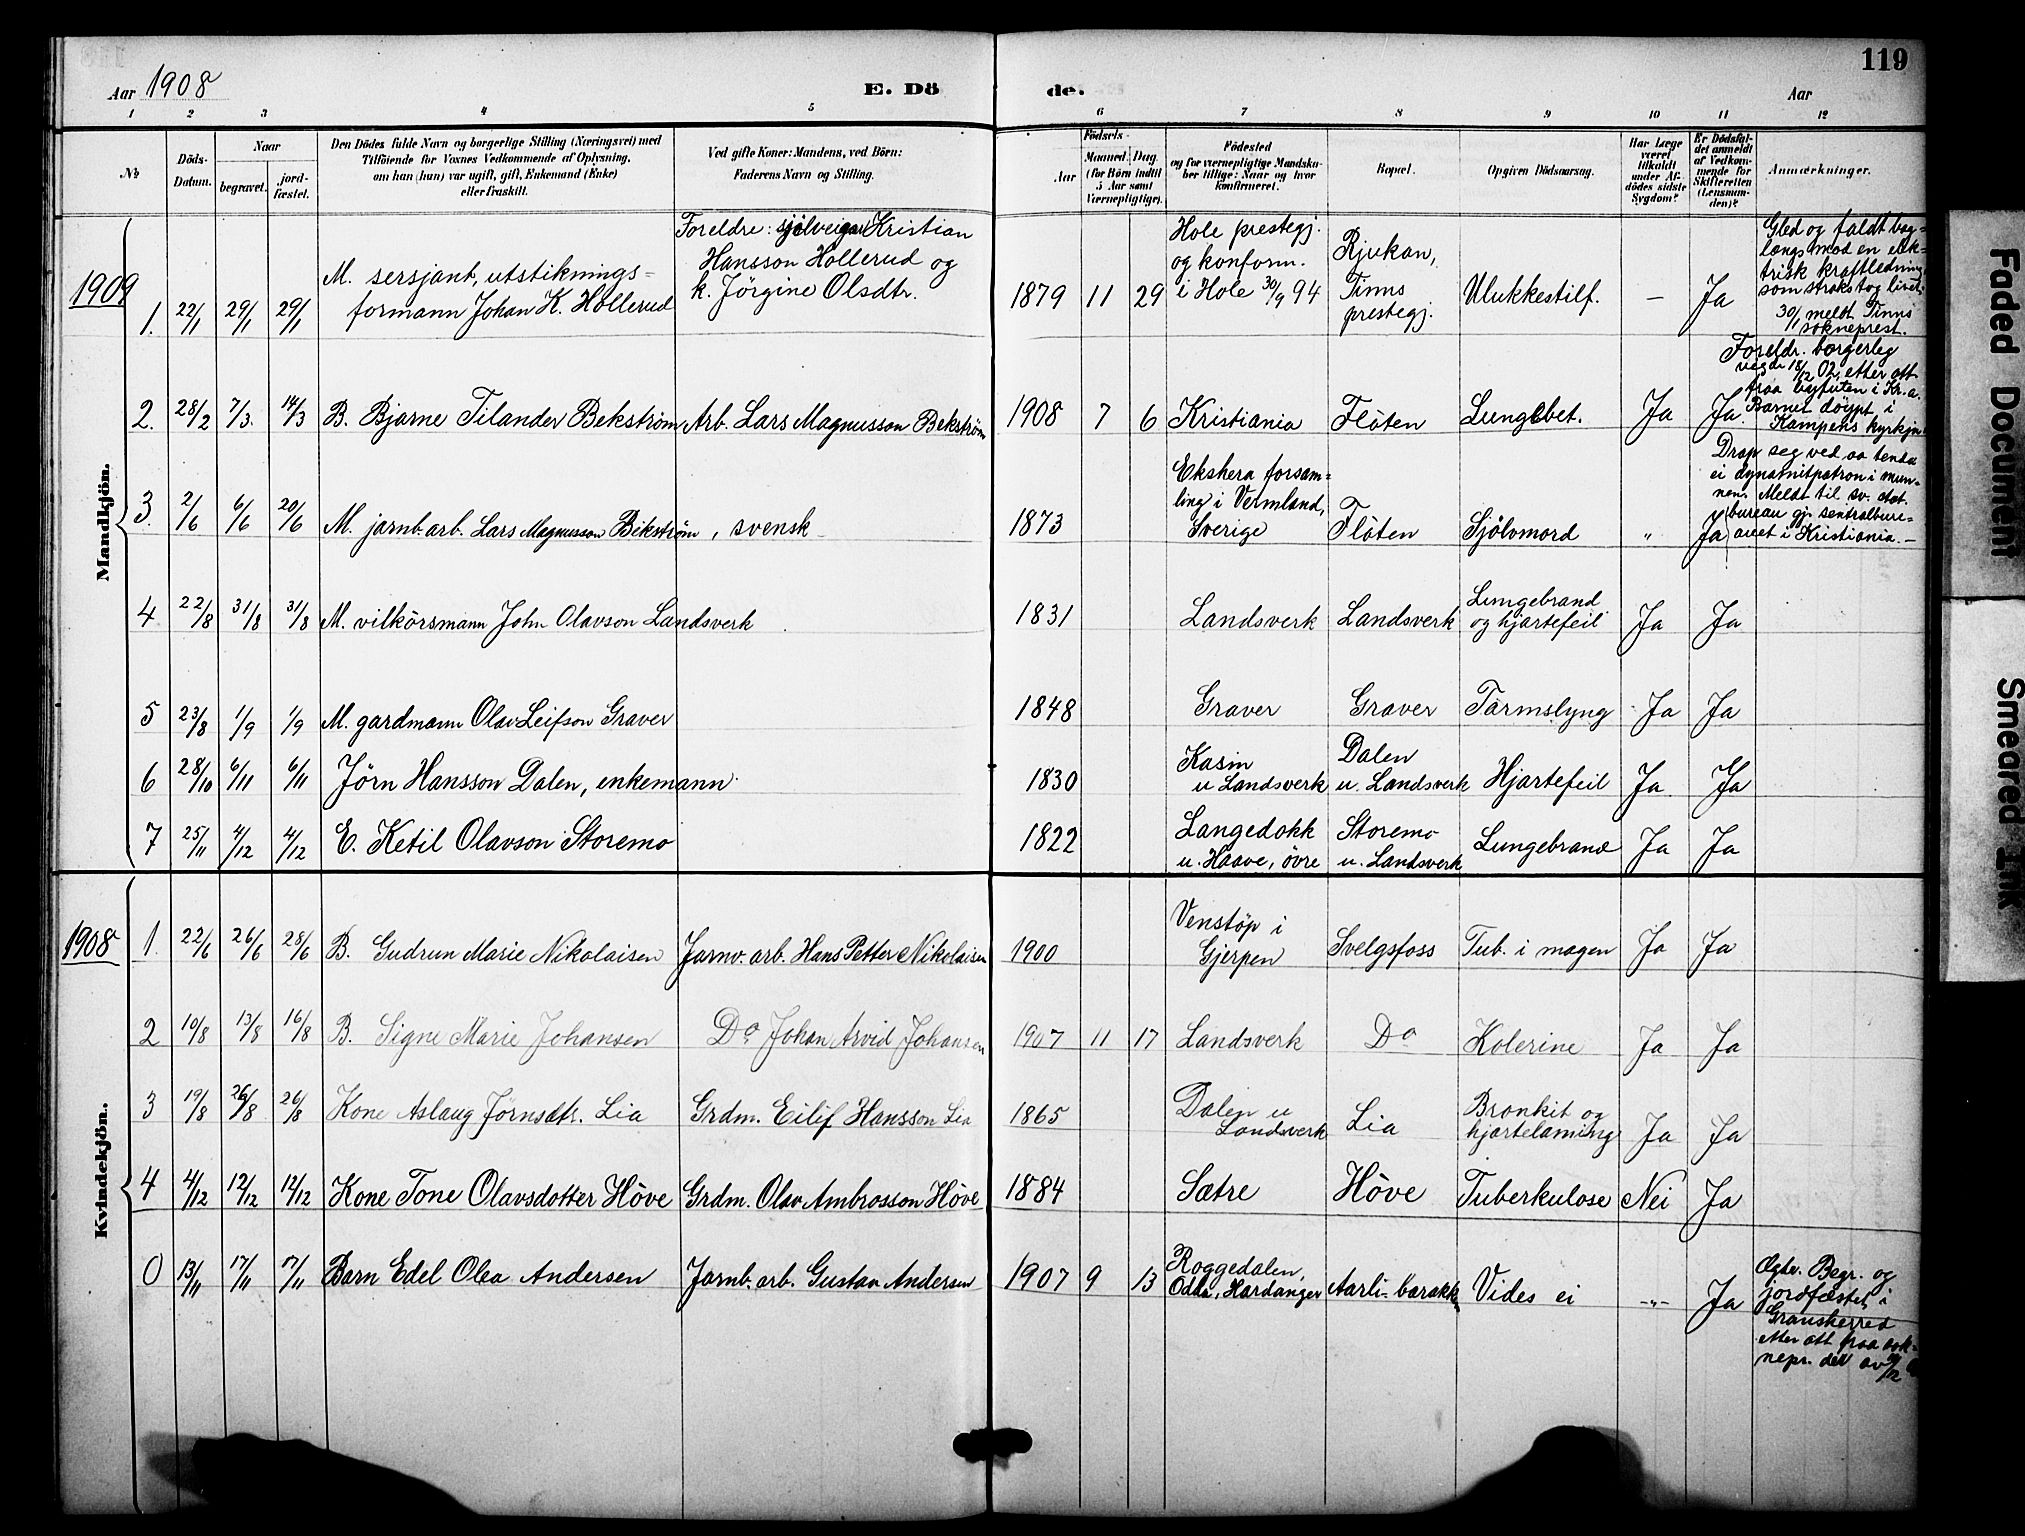 119
Aar 1908
E. Dö
de.
Aar
1 2 3 4 5 6 7 8 9 10 11 12
№
Döds-Datum.
Naar
begravet.
jord-fæstet.
Den Dödes fulde Navn og borgerlige Stilling (Næringsvei) med
Tilföiende for Voxnes Vedkommende af Oplysning,
om han (hun) var ugift, gift, Enkemand (Enke)
eller fraskilt.
Ved gifte Koner: Mandens, ved Börn:
Faderens Navn og Stilling.
Födsels-
Aar
Maaned. Dag.
(for Börn indtil
5 Aar samt
Værnepligtige).
Födested
og for værnepligtige Mandsku-
ber tillige: Naar og hvor
konfirmeret.
Bopæl.
Opgiven Dödsaarsag.
Har Læge
været
tilkaldt
under Af-
dödes sidste
Sygdom?
Er Dödsfal-
det anmeldt
af Vedkom-
mende for
Skifteretten
(Lensman-
den)?
Anmærkninger.
Mandkjön.
1909
1. 22/1 29/1 29/1
M. sersjant, utstiknings-
formann Johan K. Hollerud
Foreldre: sjölveigar Kristian
Hansson Hollerud og
k. Jörgine Olsdtr.
1879 11 29
Hole prestegj.
og konform.
i Hole 30/9 94
Rjukan,
Tinns
prestegj.
Ulukkestilf. – Ja
Gled og faldt bag-
længs mod en elek-
trisk kraftledning
som straks tog livet.
30/1 meldt Tinns
sokneprest.
2. 28/2 7/3. 14/3 B. Bjarne Tilander Bekström Arb. Lars Magnusson Bekström 1908 7 6 Kristiania Flöten Lungebet. Ja Ja.
Foreldr. borgerleg
vigde 18/12 02, etter att
fraa byfuten i Kr.a.
Barnet döypt i
Kampens kyrkja
3. 2/6 6/6 20/6 M. jarnb. arb. Lars Magnusson Bekström, svensk – 1873
Ekshera forsam-
ling i Vermland,
Sverige
Flöten Sjölvmord " Ja
Drap seg ved aa tenda
ei dynamitpatron i mun-
nen. Meldt til sv. stat.
bureau gj. sentralbure-
auet i Kristiania. –
4 22/8 31/8 31/8 M. vilkörsmann John Olavson Landsverk 1831 Landsverk Landsverk
Lungebrand
og hjartefeil
Ja Ja
5 23/8 1/9 1/9 M. gardmann Olav Leifson Graver 1848 Graver Graver Tarmslyng Ja Ja
6 28/10 6/11 6/11 Jörn Hansson Dalen, enkemann. 1830
Kasin
u Landsverk
Dalen
u. Landsverk
Hjartefeil Ja Ja
7 25/11 4/12 4/12 E. Ketil Olavson Storemo 1822
Langedokk
u. Haave, övre
Storemo
u. Landsverk
Lungebrand Ja Ja
Kvindekjön.
1908
1. 22/6 26/6 28/6 B. Gudrun Marie Nikolaisen Jarnv. arb. Hans Petter Nikolaisen 1900
Venstöp i
Gjerpen
Svelgsfoss Tub. i magen Ja Ja
2 10/8 13/8 16/8 B. Signe Marie Johansen Do Johan Arvid Johansen 1907 11 17 Landsverk Do Kolerine Ja Ja
3 19/8 26/8 26/8 Kone Aslaug Jörnsdtr. Lia Grdm. Eilif Hansson Lia 1865
Dalen u
Landsverk
Lia
Bronkit og
hjartelaming
Ja Ja
4 4/12 12/12 12/12 Kone Tone Olavsdotter Höve Grdm. Olav Ambrosson Höve 1884 Sætre Höve Tuberkulose Nei Ja
0 13/11 17/11 17/11 Barn Edel Olea Andersen Jarnb. arb. Gustav Andersen 1907 9 13
Roggedalen,
Odda, Hardanger
Aarli-barakk Vides ei –"– Ja
Begr. og
jordfæstet i
Gransherred
etter att fraa sok-
nepr. der av
Faded Document
Smeared Ink